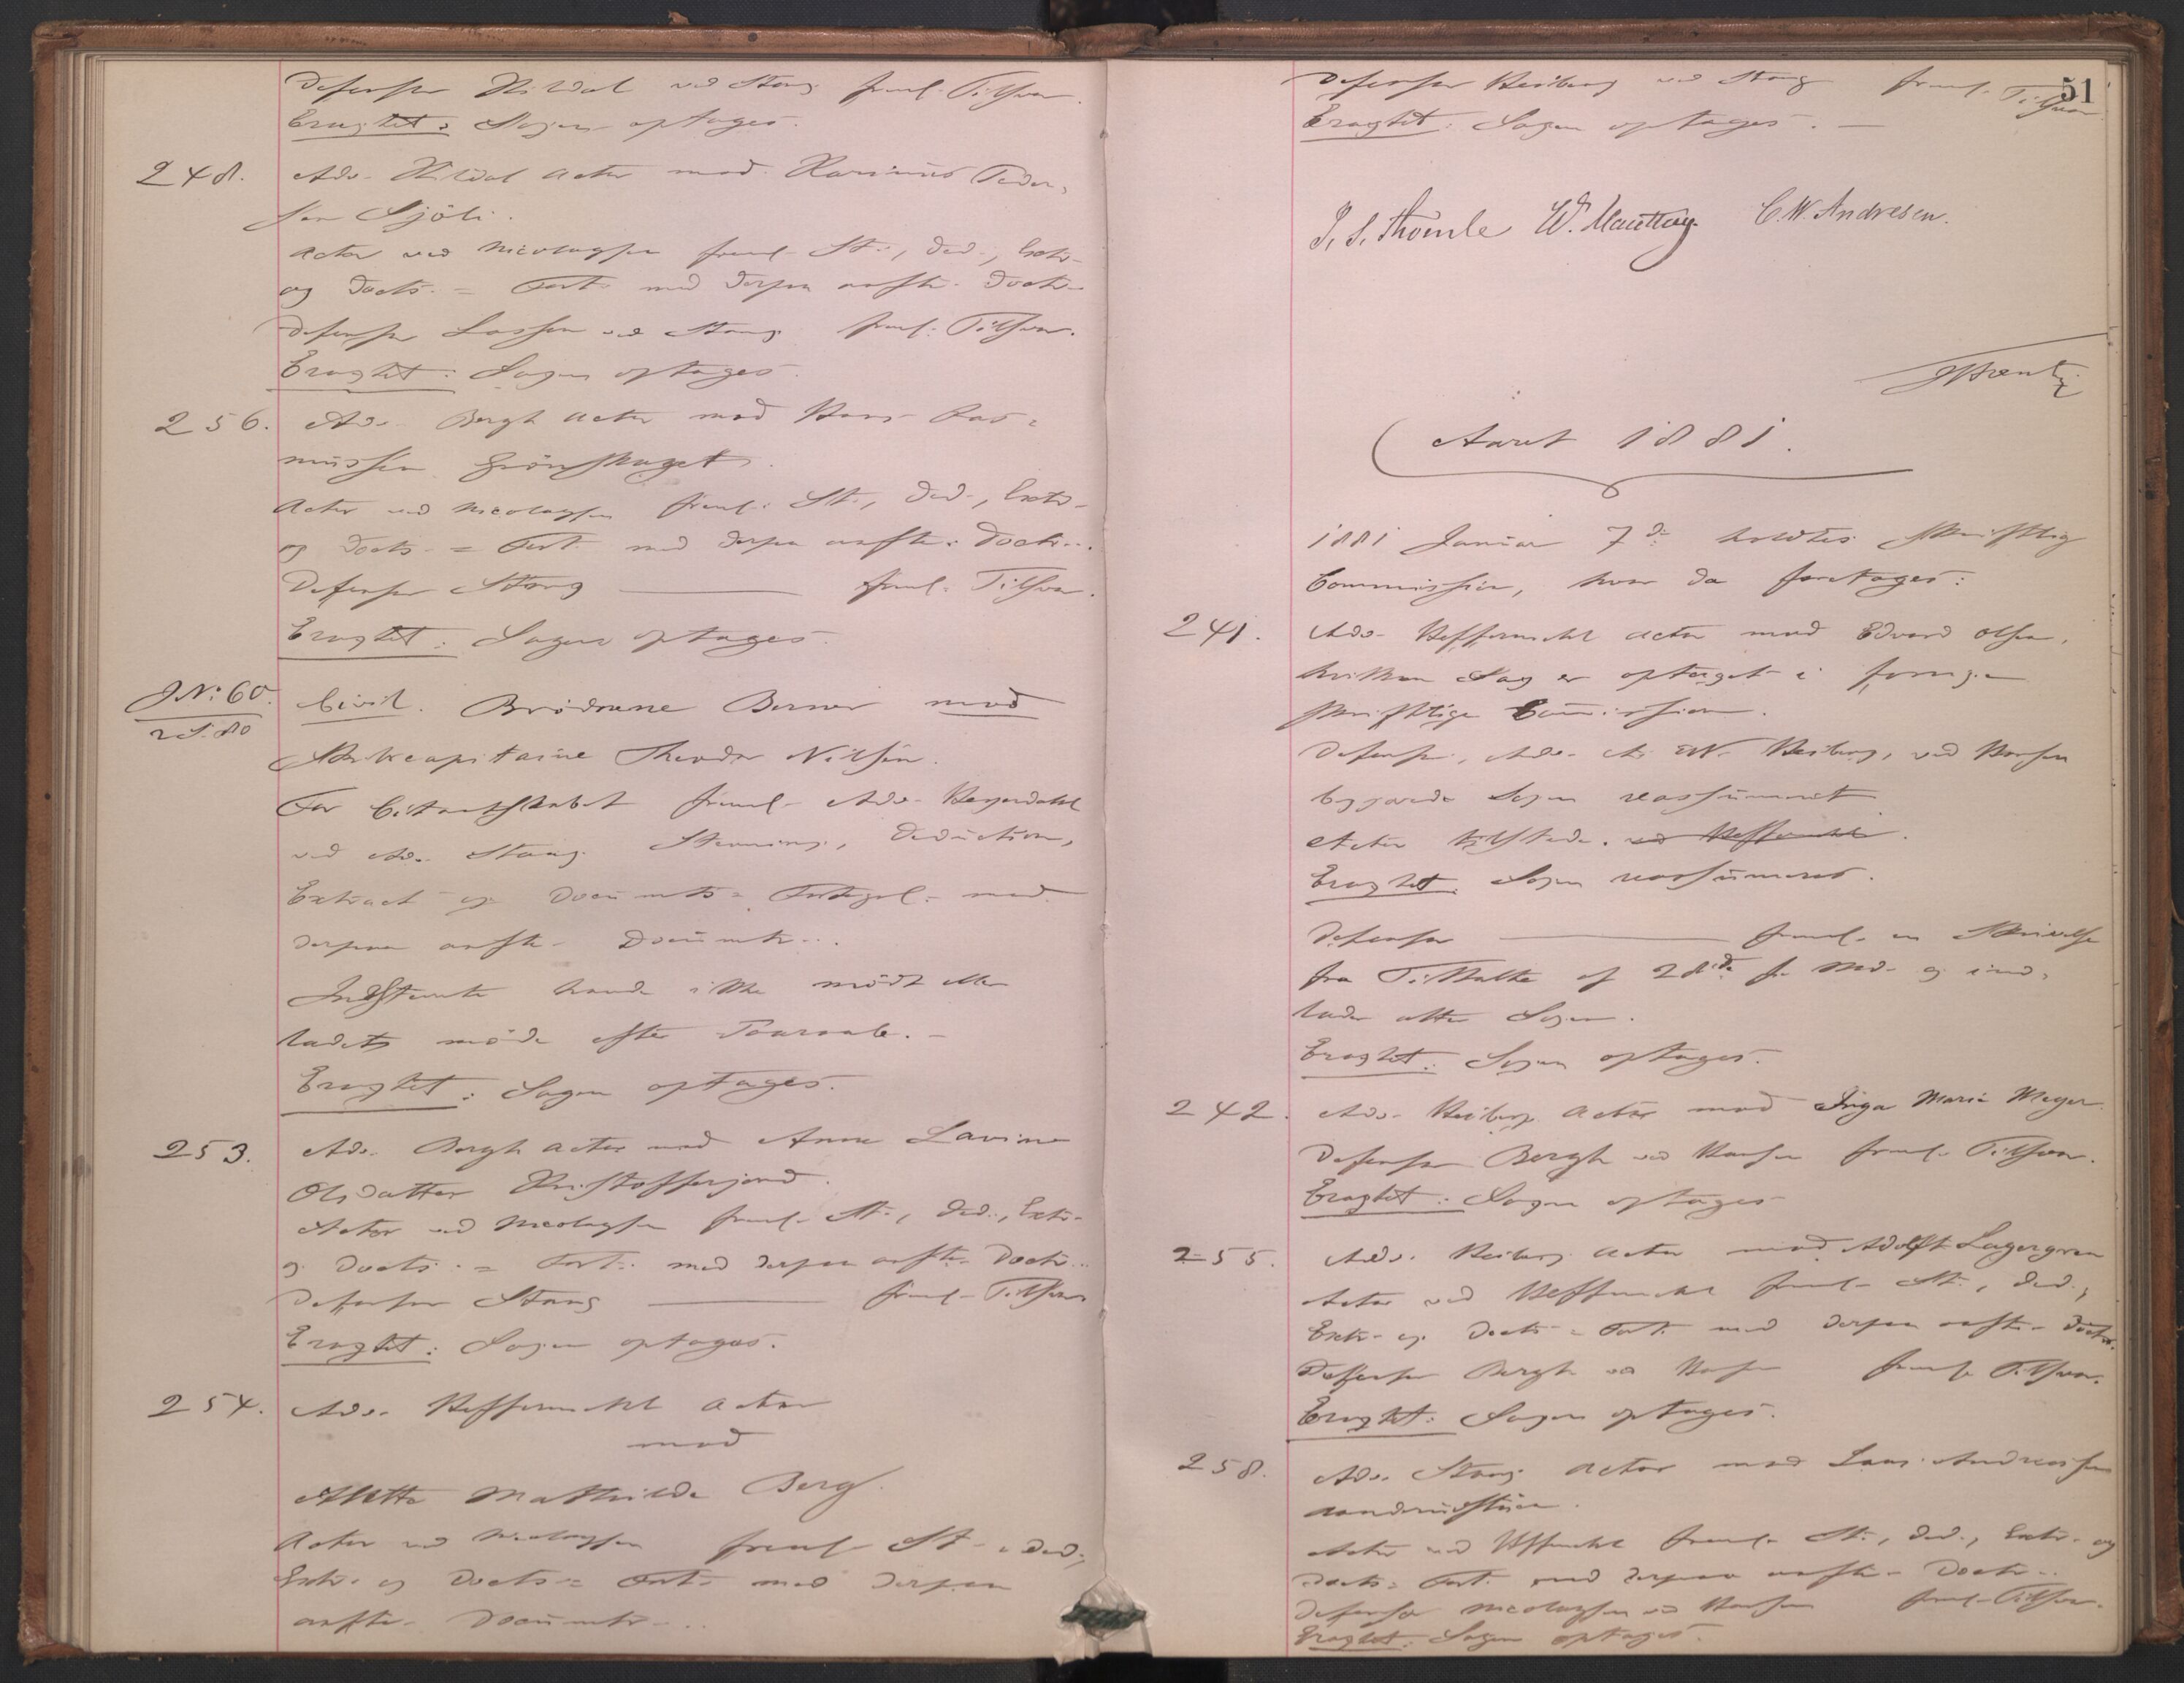 Defensor Hildal ved Stang freml. Tilsvar.
Eragtet: Sagen optages.
248. Adv. Hildal Actor mod Rasmus Peder-
sen Sjöli.
Actor ved Nicolaysen freml. St., Ded., Extr.
og Docts. = Fort. med derpaa anfte. Doctr.
Defensor Lassen ved Stang freml. Tilsvar.
Eragtet: Sagen optages.
256. Adv. Bergh Actor mod Hans Ras-
mussen Grönskaget.
Actor ved Nicolaysen freml. St., Ded., Extr.
og Docts. = Fort. med derpaa anfte. Doctr.
Defensor Stang freml. Tilsvar.
Eragtet: Sagen optages.
J.N: 60. Civil. Brödrene Berner mod
2 S. 80
Skibscapitaine Theodor Nilsen.
For Citantskabet freml. Adv. Heyerdahl
ved Adv. Stang Stævning, Deduction,
Extract og Documts = Fortegel. med
derpaa anfte. Documtr.
Indstevnte havde ikke mödt eller
ladet möde efter Paaraab.
Eragtet: Sagen optages.
253. Adv. Bergh Actor mod Anne Lavine
Olsdatter Kristoffersjord.
Actor ved Nicolaysen freml. St., Ded., Extr.
og Docts. = Fort. med derpaa anfte. Doctr.
Defensor Stang freml. Tilsvar
Eragtet: Sagen optages.
254. Adv. Actor
mod
Aletta Mathilde Berg.
Actor ved Nicolaysen freml. St., Ded.,
Extr. og Docts = Fort. med derpaa
anfte. Documtr.
51
Defensor Heiberg ved Stang freml. Tilsvar
Eragtet: Sagen optages.
C. W. Andresen.
Aaret 1881.
1881 Januar 7de holdtes skriftlig
Commission, hvor da foretages:
241. Adv. Actor mod Edvard Olsen,
hvilken Sag er optaget i forrige
skriftlige Commission.
Defensor, Adv. A. W. Heiberg, ved Hansen
begjærede Sagen reassumeret
Actor tilstede.
Eragtet: Sagen reassumeres.
Defensor freml. en Skrivelse
fra Tiltalte af 28de f. Md. og ind-
lader atter Sagen.
Eragtet: Sagen optages.
242. Adv. Heiberg Actor mod Inga Marie Meyer.
Defensor Bergh ved Hansen freml. Tilsvar.
Eragtet: Sagen optages
255. Adv. Heiberg Actor mod Adolf Lagergren
Actor ved freml. St., Ded.,
Extr. og Docts = Fort. med derpaa anfte. Doctr.
Defensor Bergh ved Hansen freml. Tilsvar.
Eragtet: Sagen optages.
258. Adv. Stang Actor mod Lars Andreassen
Actor ved freml. St., Ded., Extr. og
Docts = Fort. med derpaa anfte. Doctr.
Defensor Nicolaysen ved Hansen freml. Tilsvar.
Eragtet: Sagen optages.